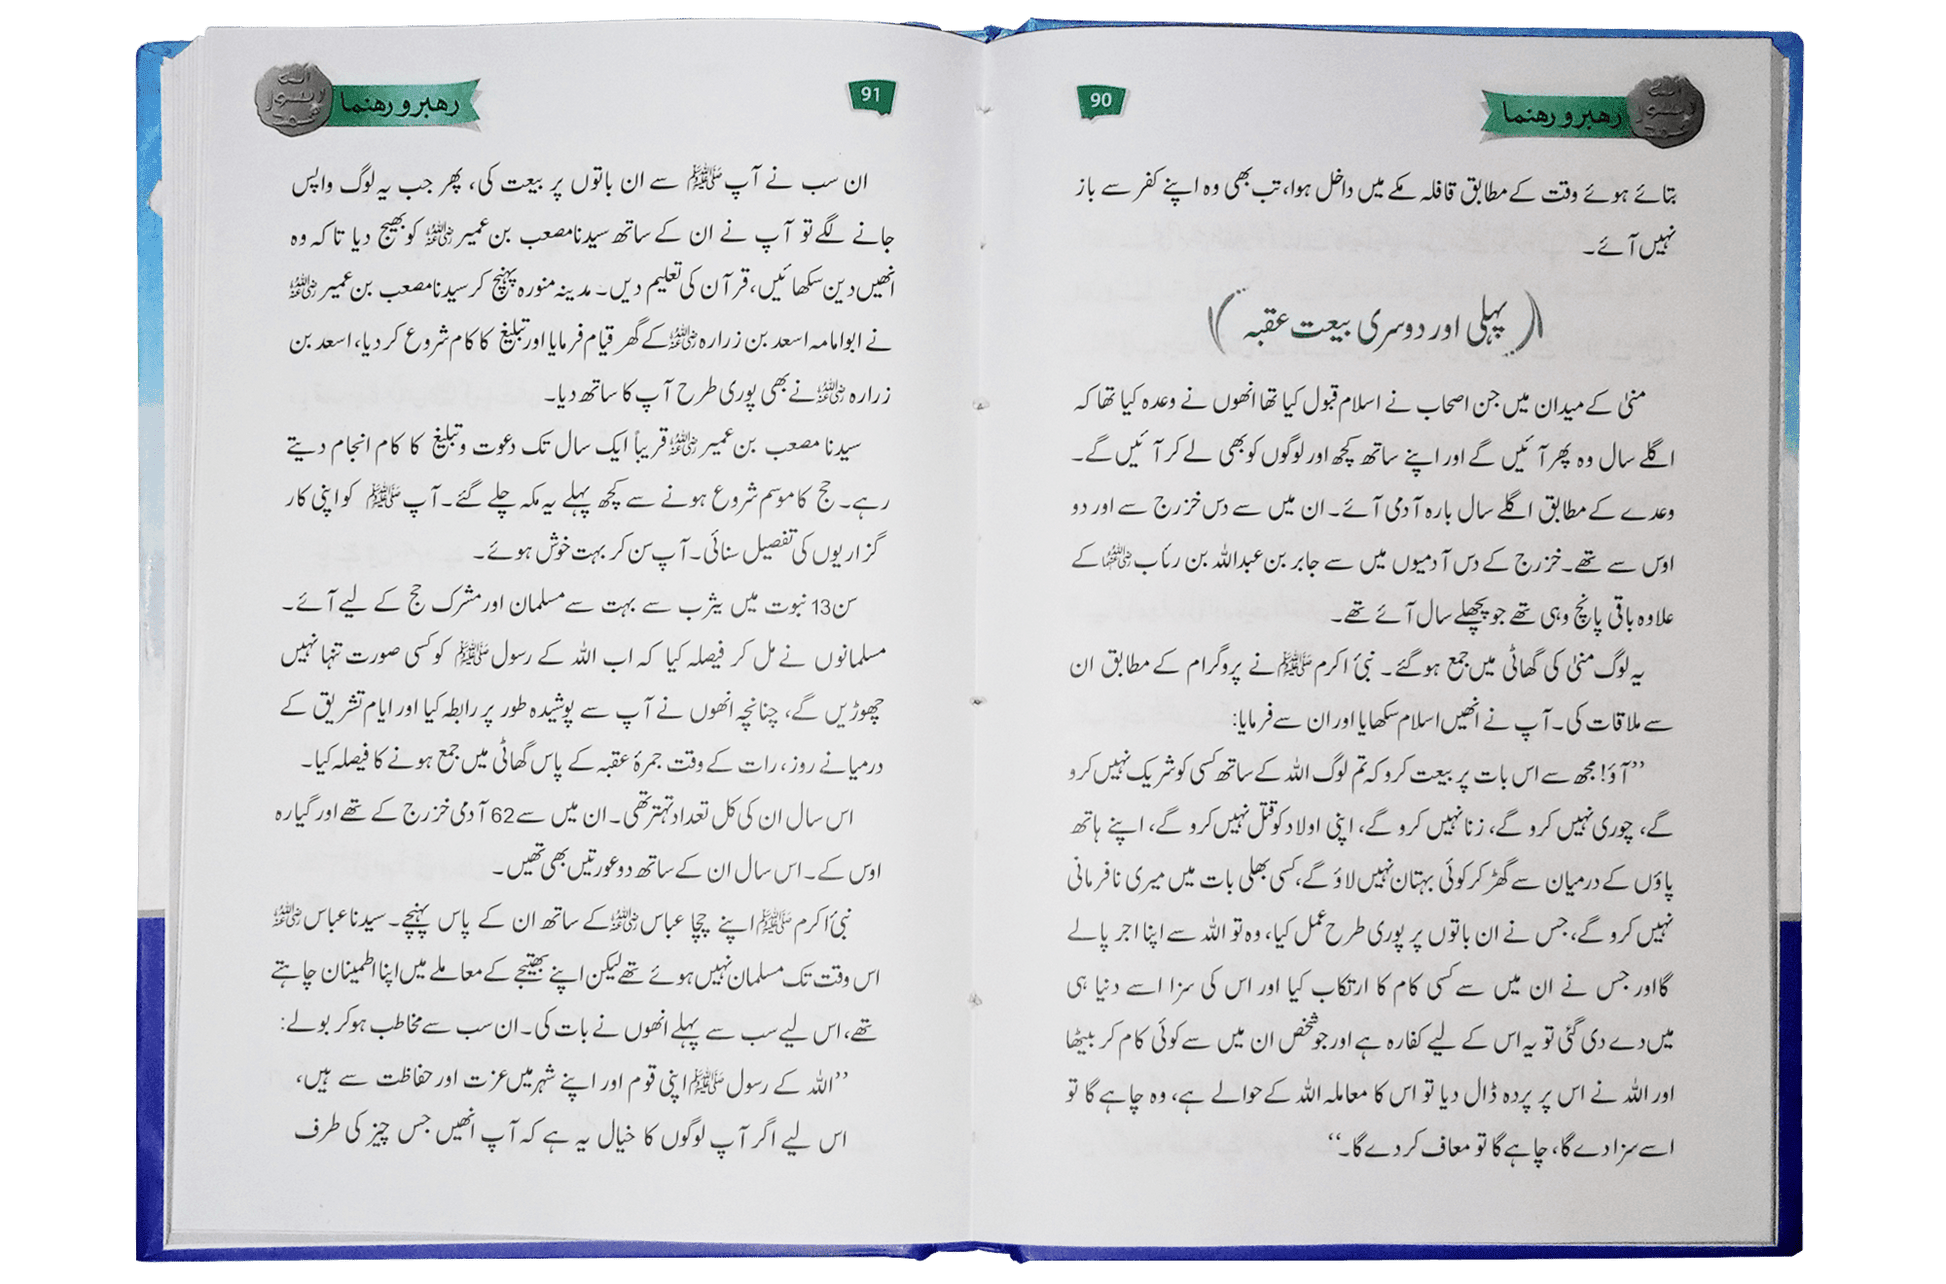 رهبر و رهنما
90
بتائے ہوئے وقت کے مطابق قافلہ مکے میں داخل ہوا، تب بھی وہ اپنے کفر سے باز
نہیں آئے۔
پہلی اور دوسری بیعت عقبہ
منیٰ کے میدان میں جن اصحاب نے اسلام قبول کیا تھا انھوں نے وعدہ کیا تھا کہ
اگلے سال وہ پھر آئیں گے اور اپنے ساتھ کچھ اور لوگوں کو بھی لے کر آئیں گے۔
وعدے کے مطابق اگلے سال بارہ آدمی آئے۔ ان میں سے دس خزرج سے اور دو
اوس سے تھے۔ خزرج کے دس آدمیوں میں سے جابر بن عبداللہ بن رئاب رضی اللہ عنہما کے
علاوہ باقی پانچ وہی تھے جو پچھلے سال آئے تھے۔
یہ لوگ منیٰ کی گھاٹی میں جمع ہوگئے۔ نبیٔ اکرم ﷺ نے پروگرام کے مطابق ان
سے ملاقات کی۔ آپ نے انھیں اسلام سکھایا اور ان سے فرمایا:
’’آؤ! مجھ سے اس بات پر بیعت کرو کہ تم لوگ اللہ کے ساتھ کسی کو شریک نہیں کرو
گے، چوری نہیں کرو گے، زنا نہیں کرو گے، اپنی اولاد کو قتل نہیں کرو گے، اپنے ہاتھ
پاؤں کے درمیان سے گھڑ کر کوئی بہتان نہیں لاؤ گے، کسی بھلی بات میں میری نافرمانی
نہیں کرو گے، جس نے ان باتوں پر پوری طرح عمل کیا، وہ تو اللہ سے اپنا اجر پا لے
گا اور جس نے ان میں سے کسی کام کا ارتکاب کیا اور اس کی سزا اسے دنیا ہی
میں دے دی گئی تو یہ اس کے لیے کفارہ ہے اور جو شخص ان میں سے کوئی کام کر بیٹھا
اور اللہ نے اس پر پردہ ڈال دیا تو اس کا معاملہ اللہ کے حوالے ہے، وہ چاہے گا تو
اسے سزا دے گا، چاہے گا تو معاف کر دے گا۔‘‘
رهبر و رهنما
91
ان سب نے آپ ﷺ سے ان باتوں پر بیعت کی، پھر جب یہ لوگ واپس
جانے لگے تو آپ نے ان کے ساتھ سیدنا مصعب بن عمیر رضی اللہ عنہ کو بھیج دیا تاکہ وہ
انھیں دین سکھائیں، قرآن کی تعلیم دیں۔ مدینہ منورہ پہنچ کر سیدنا مصعب بن عمیر رضی اللہ عنہ
نے ابوامامہ اسعد بن زرارہ رضی اللہ عنہ کے گھر قیام فرمایا اور تبلیغ کا کام شروع کر دیا، اسعد بن
زرارہ رضی اللہ عنہ نے بھی پوری طرح آپ کا ساتھ دیا۔
سیدنا مصعب بن عمیر رضی اللہ عنہ قریباً ایک سال تک دعوت و تبلیغ کا کام انجام دیتے
رہے۔ حج کا موسم شروع ہونے سے کچھ پہلے یہ مکہ چلے گئے۔ آپ ﷺ کو اپنی کار
گزاریوں کی تفصیل سنائی۔ آپ سن کر بہت خوش ہوئے۔
سن 13 نبوت میں یثرب سے بہت سے مسلمان اور مشرک حج کے لیے آئے۔
مسلمانوں نے مل کر فیصلہ کیا کہ اب اللہ کے رسول ﷺ کو کسی صورت تنہا نہیں
چھوڑیں گے، چنانچہ انھوں نے آپ سے پوشیدہ طور پر رابطہ کیا اور ایام تشریق کے
درمیانے روز، رات کے وقت جمرۂ عقبہ کے پاس گھاٹی میں جمع ہونے کا فیصلہ کیا۔
اس سال ان کی کل تعداد تہتر تھی۔ ان میں سے 62 آدمی خزرج کے تھے اور گیارہ
اوس کے۔ اس سال ان کے ساتھ دو عورتیں بھی تھیں۔
نبیٔ اکرم ﷺ اپنے چچا عباس رضی اللہ عنہ کے ساتھ ان کے پاس پہنچے۔ سیدنا عباس رضی اللہ عنہ
اس وقت تک مسلمان نہیں ہوئے تھے لیکن اپنے بھتیجے کے معاملے میں اپنا اطمینان چاہتے
تھے، اس لیے سب سے پہلے انھوں نے بات کی۔ ان سب سے مخاطب ہو کر بولے:
’’اللہ کے رسول ﷺ اپنی قوم اور اپنے شہر میں عزت اور حفاظت سے ہیں،
اس لیے اگر آپ لوگوں کا خیال یہ ہے کہ آپ انھیں جس چیز کی طرف